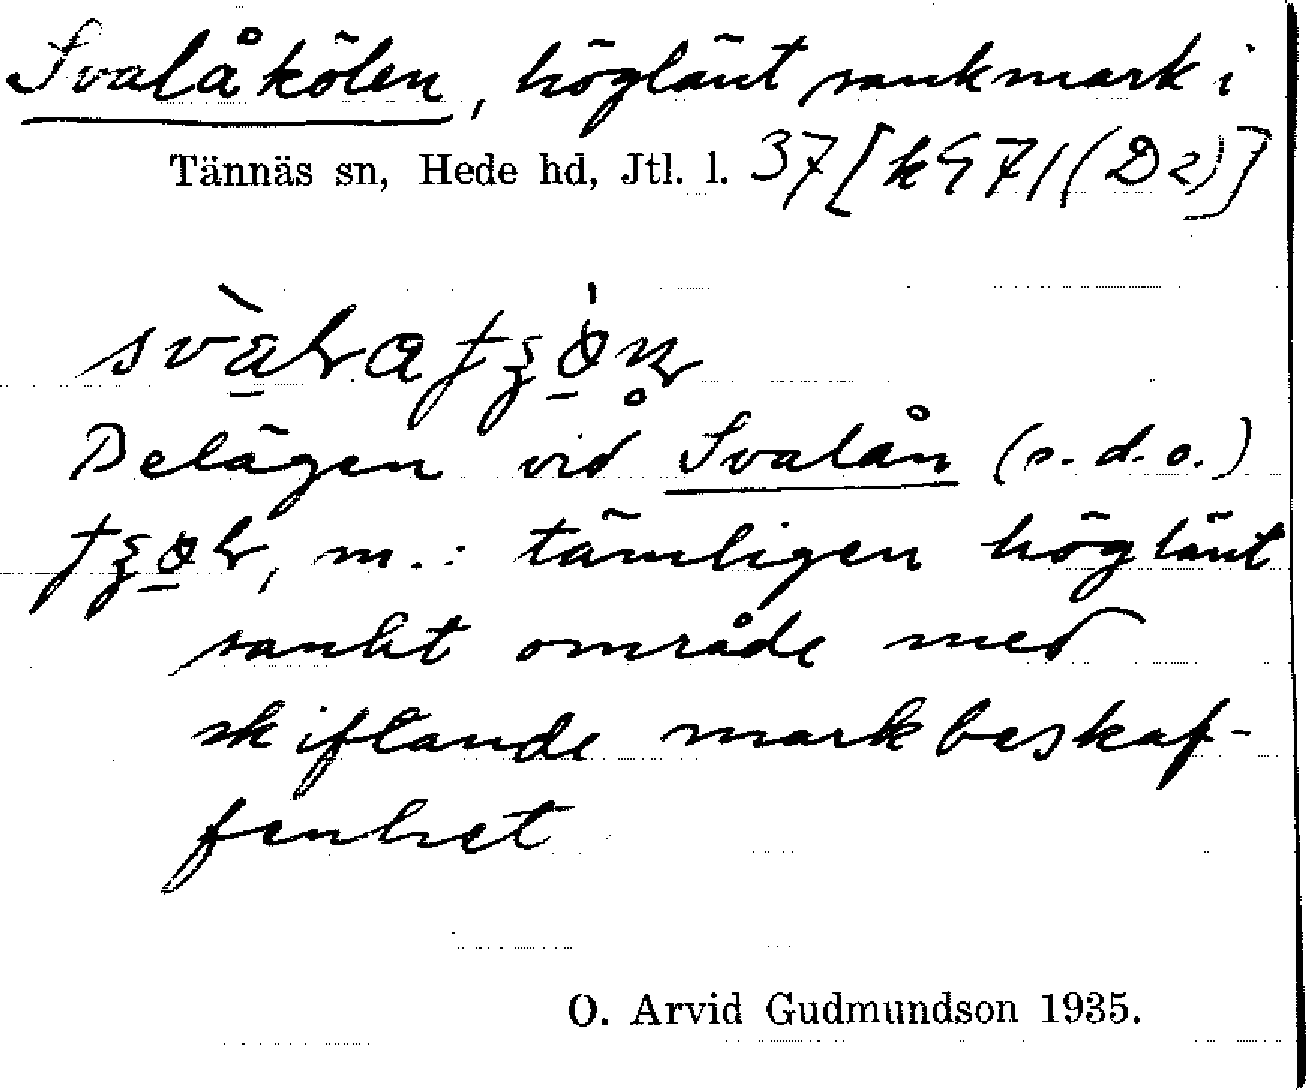 Svalåkölen, höglänt sankmark i
Tännäs sn, Hede hd, Jtl. l. 37 [k 971 (D2)]
Belägen vid Svalån (s. d. o.)
m.: tämligen höglänt
sankt område med
skiftande markbeskaf-
fenhet
O. Arvid Gudmundson 1935.